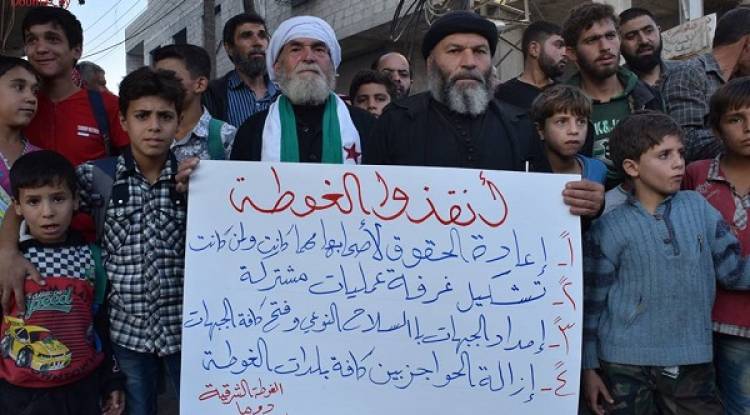 أنقذوا الغوطة
١- إعادة الحقوق لأصحابها مهما كانت ولمن كانت
٢- تشكيل غرفة عمليات مشتركة
٣- إمداد الجبهات بالسلاح النوعي وفتح كافة الجبهات
٤- إزالة الحواجز بين كافة بلدات الغوطة
الغوطة الشرقية
دوما